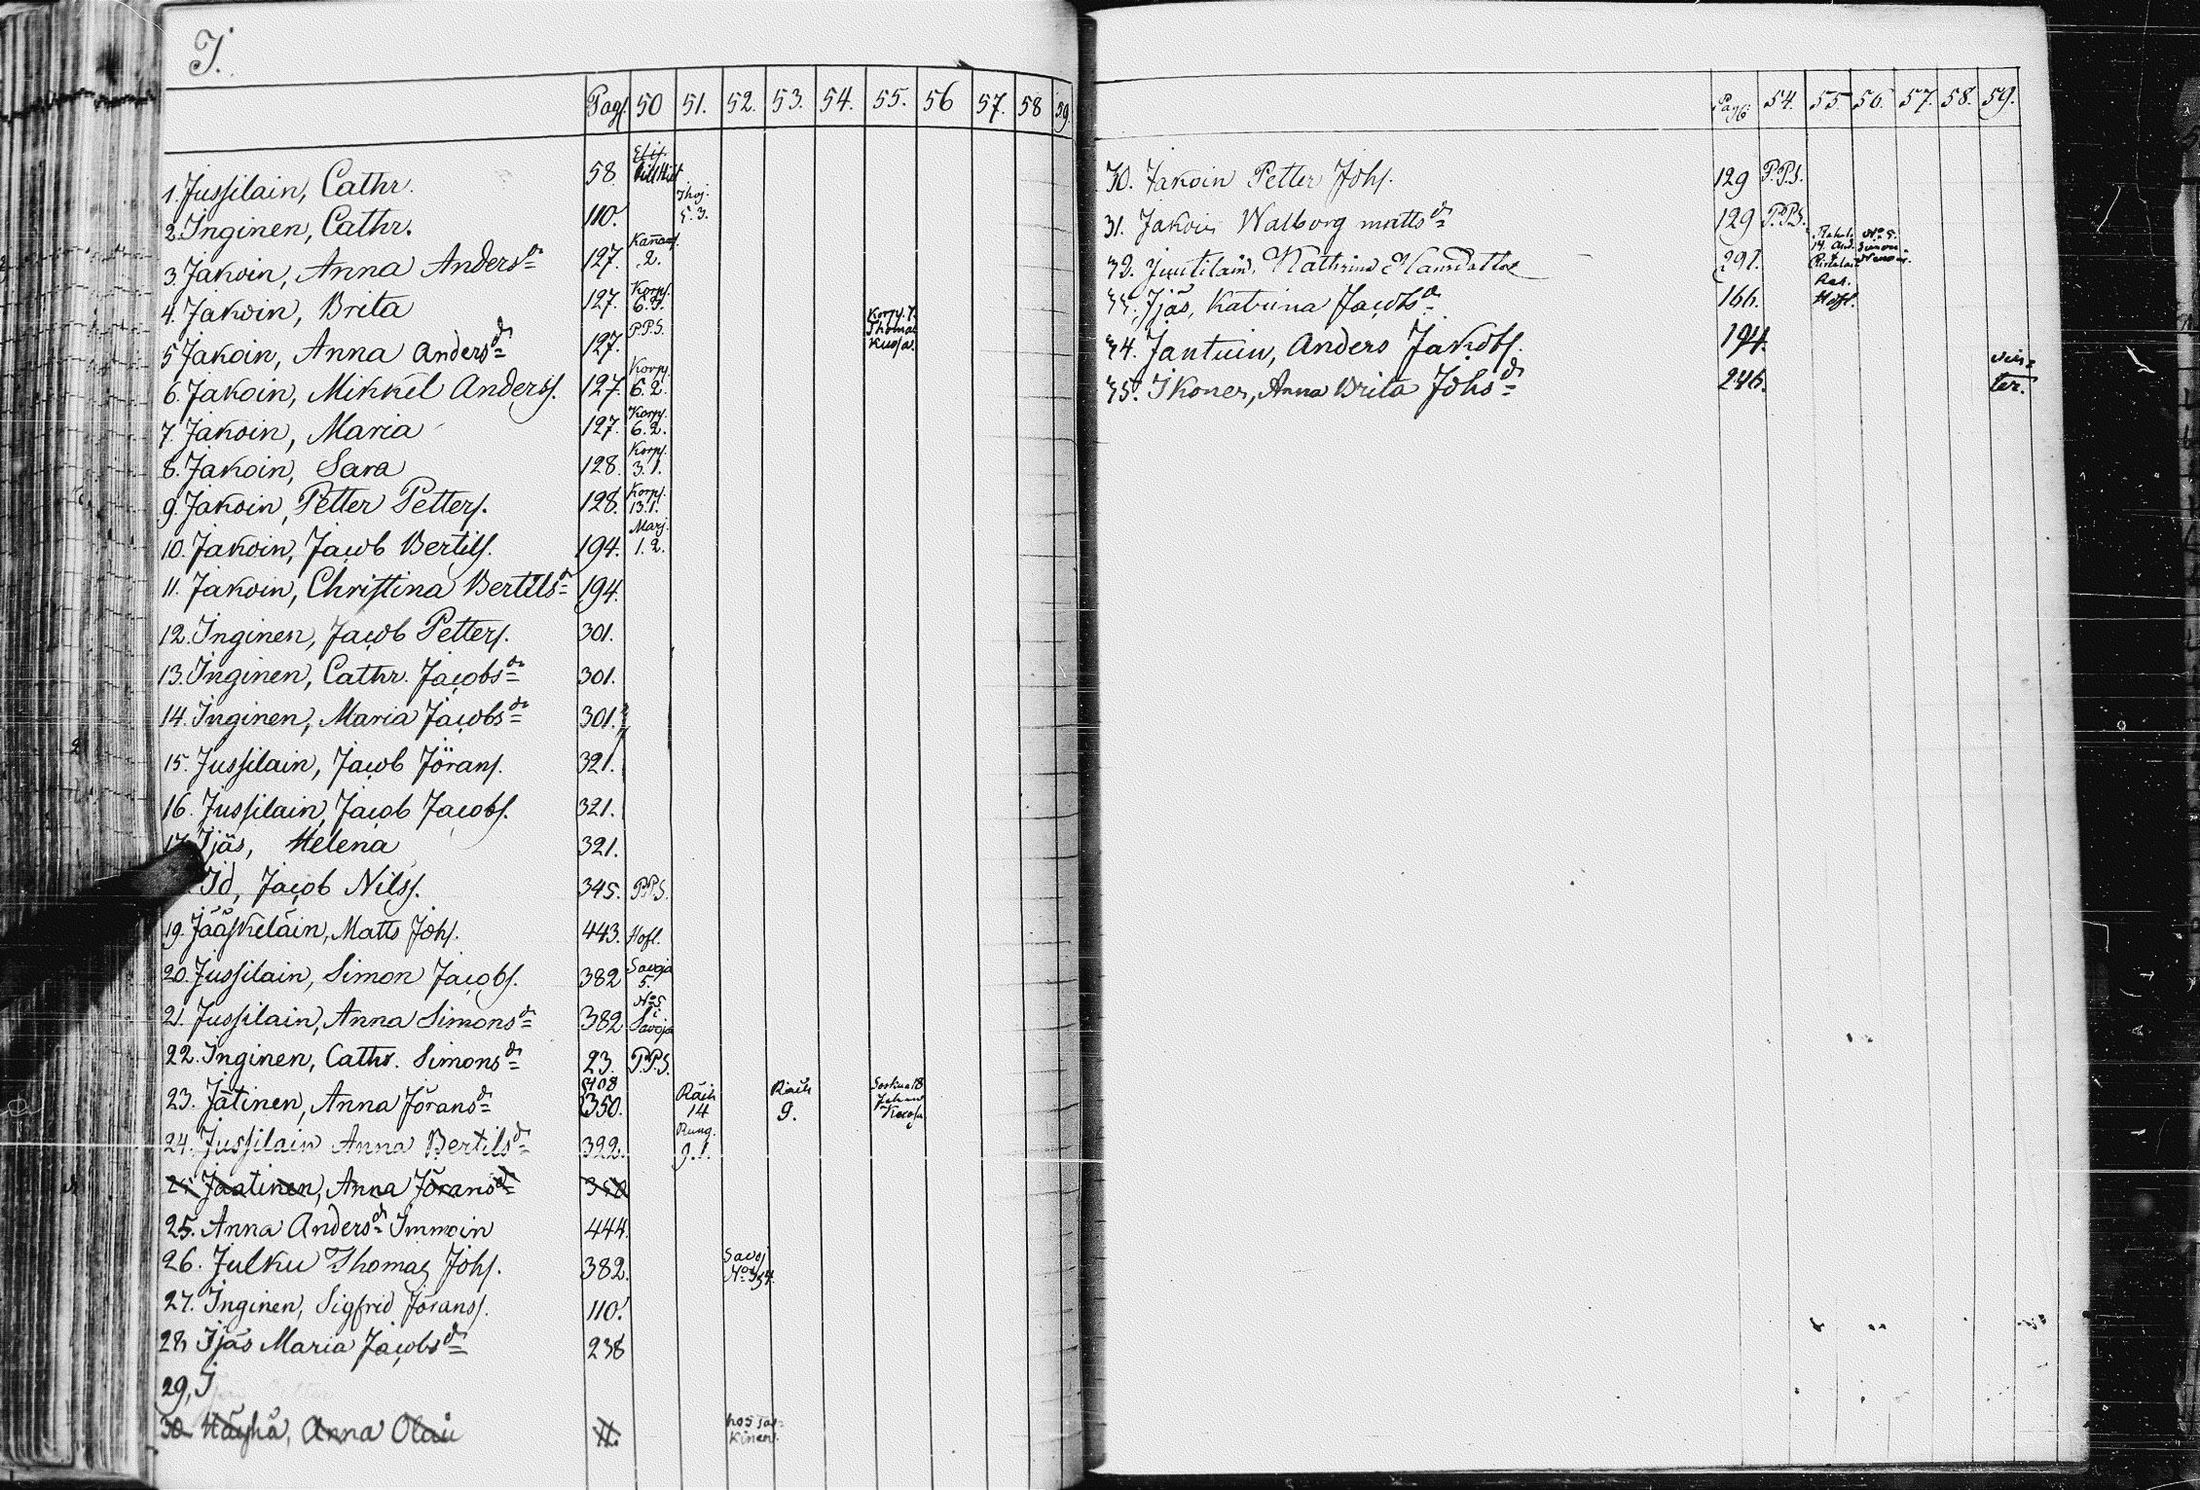 J.
Pag. 50 51. 52. 53. 54. 55. 56 57. 58 59.
1. Jussilain, Cathr. 58.
Thoj.
2. Inginen, Cathr. 110. 5.3.
3. Jakoin, Anna Andersdr 127. 2.
Korps.
4. Jakoin, Brita 127. 6.3.
Korps. 7. Thomas Kuosa.
5 Jakoin, Anna Andersdr 127. P.P.S.
Korps.
6. Jakoin, Mikkel Anderss. 127. 6.2.
Korps.
7. Jakoin, Maria 127. 6.2.
Korps.
8. Jakoin, Sara 128. 3.1.
Korps.
9. Jakoin, Petter Petters. 128. 13.1.
Marj.
10. Jakoin, Jacob Bertils. 194. 1.2.
11. Jakoin, Christina Bertilsdr 194.
12. Inginen, Jacob Petters. 301.
13. Inginen, Cathr. Jacobsdr 301.
14. Inginen, Maria Jacobsdr 301.
15. Jussilain, Jacob Jörans. 321.
16. Jussilain, Jacob Jacobs. 321.
17. Ijäs, Helena 321.
Id, Jacob Nilss. 345. P.P.S.
19. Jääskeläin, Matts Johs. 443. Hofl.
20. Jussilain, Simon Jacobs. 382 Savoja 5.
21. Jussilain, Anna Simonsdr 382 No 5 i Savoja
22. Inginen, Cathr. Simonsdr 23. P.P.S.
408
23. Jätinen, Anna Jöransdr 350. Räih 14 Räih 9.
24. Jussilain Anna Bertilsdr 392. Rung. 9.1.
Jaatinen, Anna Jöransdr 350
25. Anna Andersdr Immoin 444.
26. Julku Thomas Johs. 382. Savoj
27. Inginen, Sigfrid Jöranss. 110.
28 Ijäs Maria Jacobsdr 238
29, J
30 Häyhä, Anna Olai hos Jas-
kinen.
Pag. 54. 55. 56. 57. 58. 59.
30. Jakoin Petter Johs. 129 P.P.S.
31. Jakoin Walborg mattsdr 129 P.P.S.
32. Juutilain, Kathrina 291.
33. Ijäs, Katrina Jacobsdr 166. Hofl.
34. Jantuin, Anders Jakobs. 194.
35. Ikonen, Anna Brita Johsdr 246.